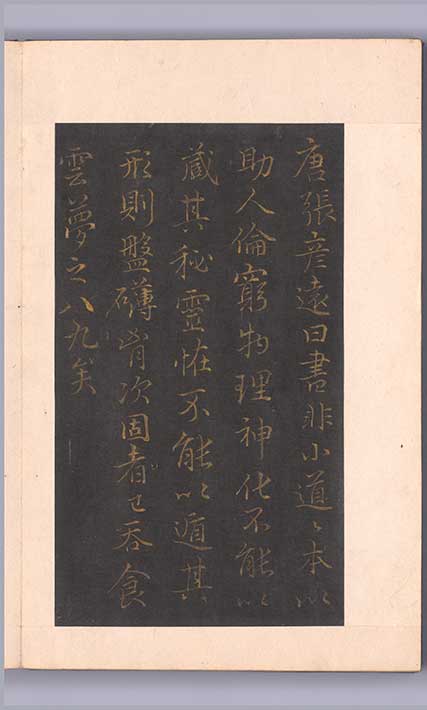 唐張彦遠曰書非小道〻本以
助人倫窮物理神化不能以
蔵其秘靈怪不能以遁其
形則盤礴胷次固者已吞食
雲夢之八九矣